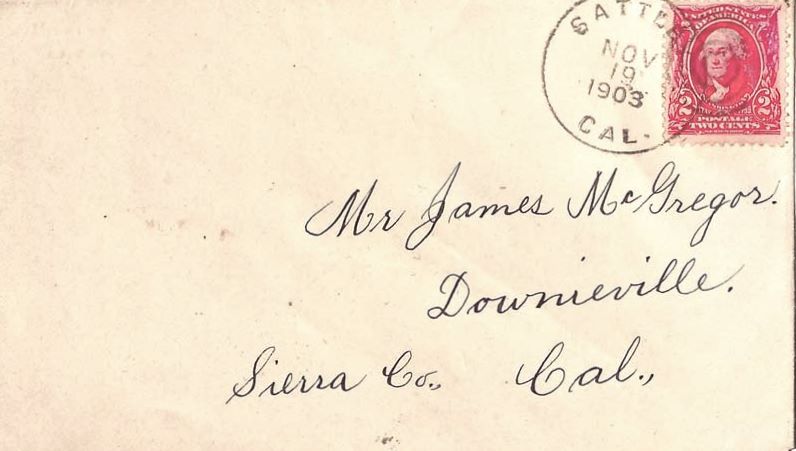 SATTE
NOV
19
1903
CAL.
UNITED STATES
OF AMERICA
2 2
POSTAGE
TWO CENTS
Mr James McGregor.
Downieville.
Sierra Co., Cal.,